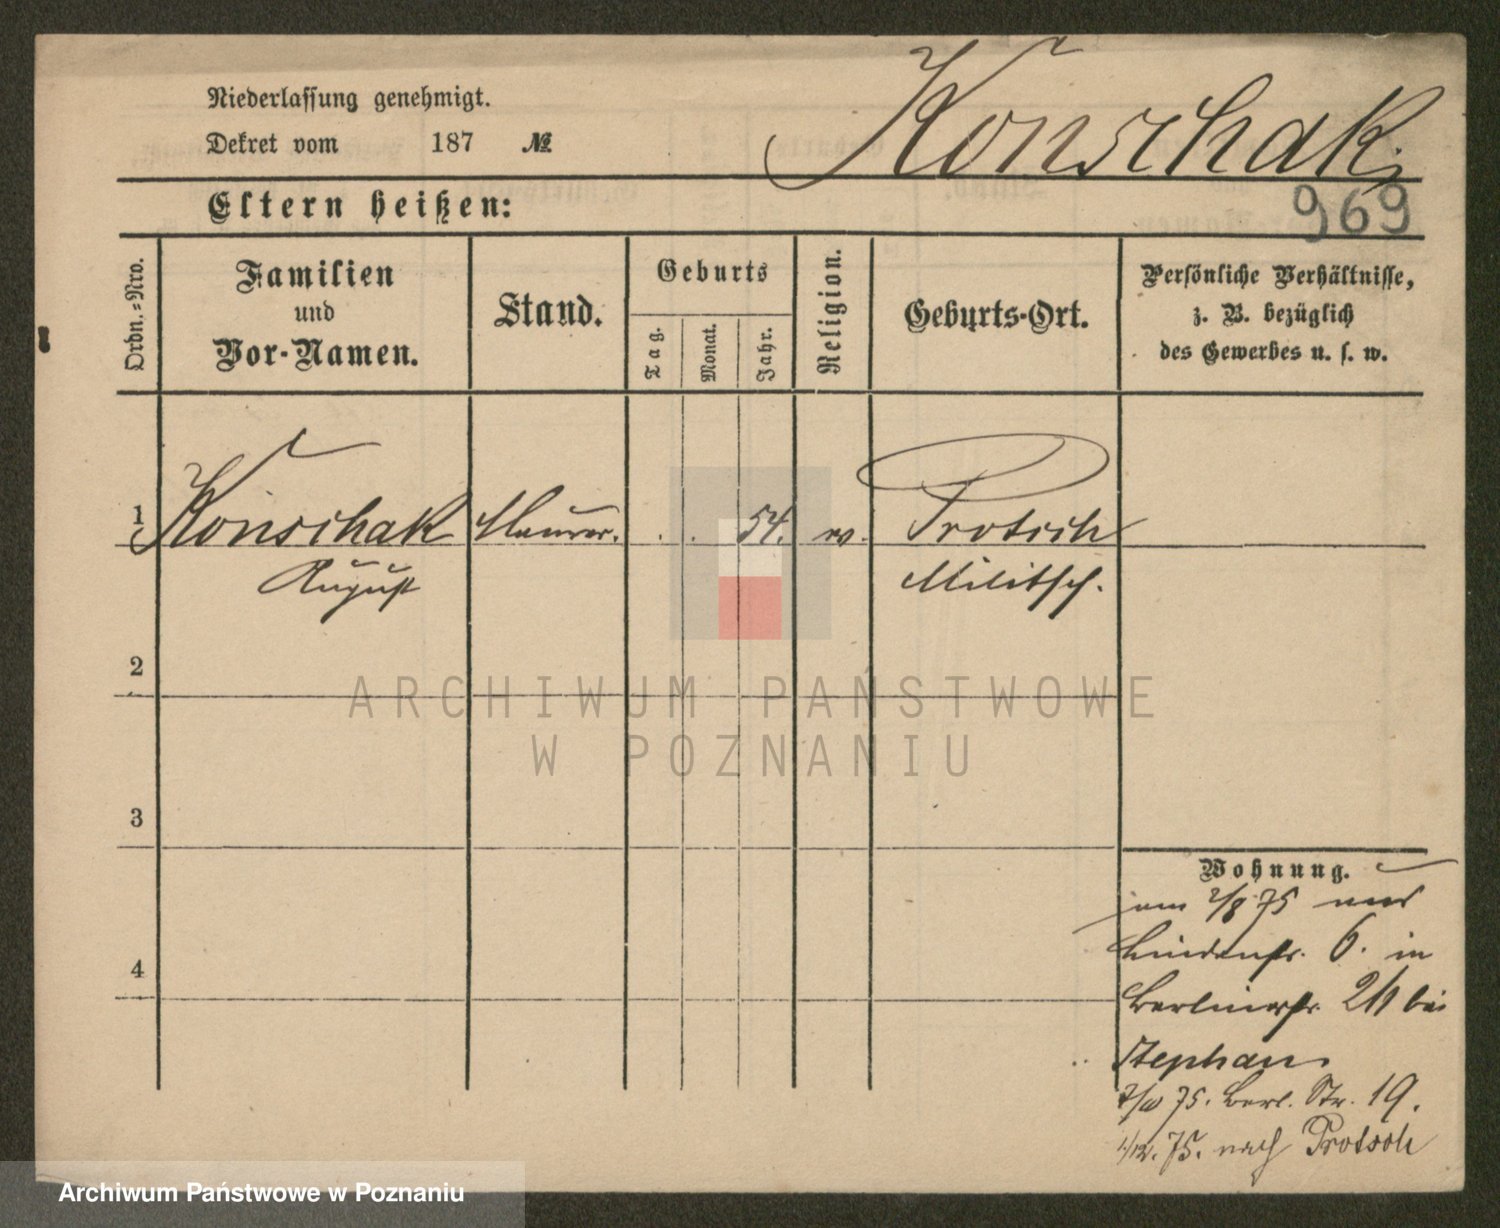 Konschak
Niederlassung genehmigt.
Dekret vom 187 №
969
Eltern heißen:
Ordn.=Nro.
Familien
und
Vor-Namen.
Stand.
Geburts
Tag.
Monat.
Jahr.
Religion.
Geburts-Ort.
Persönliche Verhältnisse,
z. B. bezüglich
des Gewerbes u. s. w.
1 Konschak Maurer. . . 54. ev. Protsch
August Militsch.
2
3
4
Wohnung.
am 2/8 75 aus
Lindenstr. 6. in
Berlinerstr. 2/1 bei
Stephan
75. Berl. Str. 19.
1/12. 75. nach Protsch
ARCHIWUM PAŃSTWOWE
W POZNANIU
Archiwum Państwowe w Poznaniu